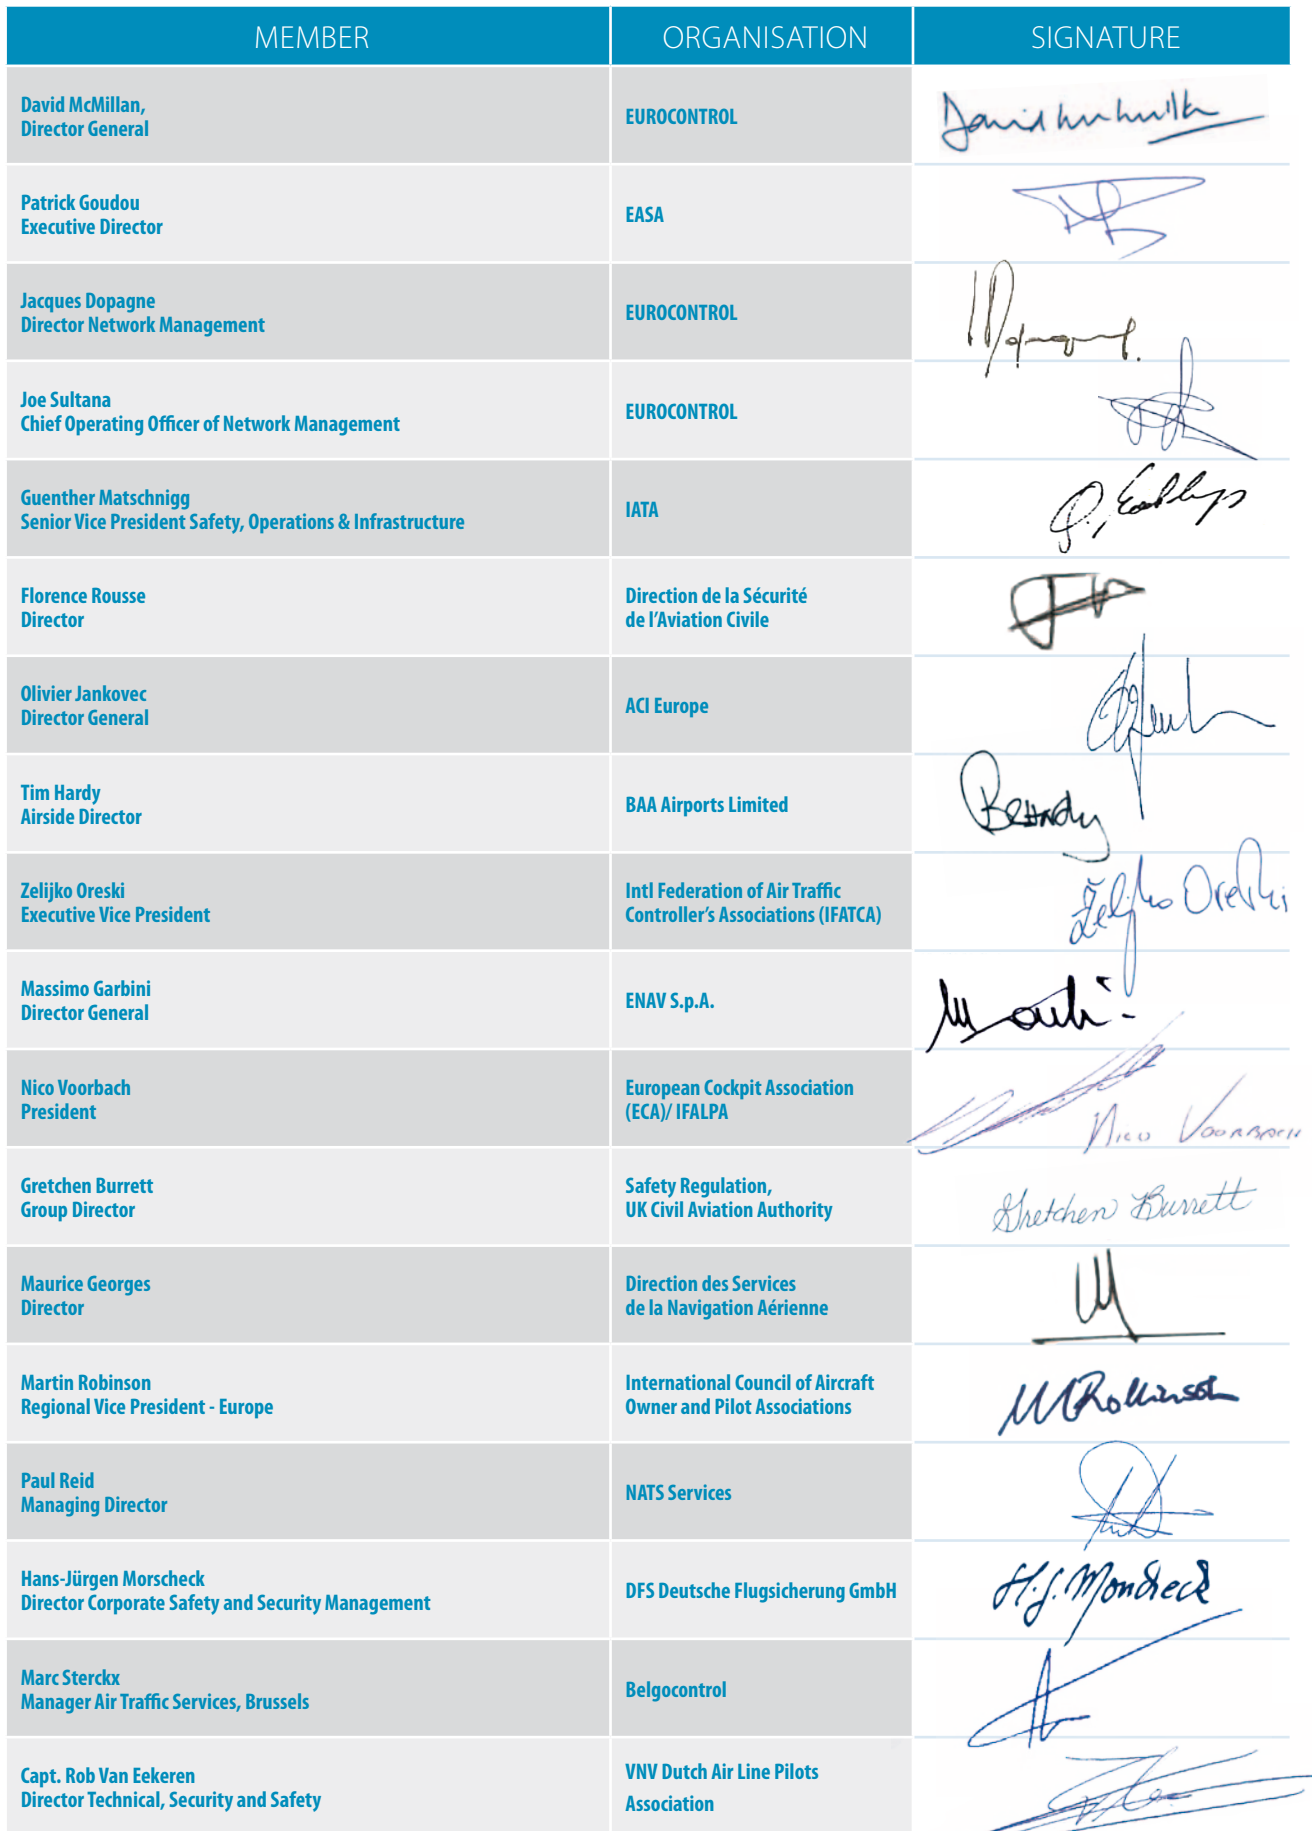 MEMBER ORGANISATION SIGNATURE
David McMillan,
Director General
EUROCONTROL
Patrick Goudou
Executive Director
EASA
Jacques Dopagne
Director Network Management
EUROCONTROL
Joe Sultana
Chief Operating Officer of Network Management
EUROCONTROL
Guenther Matschnigg
Senior Vice President Safety, Operations & Infrastructure
IATA
Florence Rousse
Director
Direction de la Sécurité
de l'Aviation Civile
Olivier Jankovec
Director General
ACI Europe
Tim Hardy
Airside Director
BAA Airports Limited
Zelijko Oreski
Executive Vice President
Intl Federation of Air Traffic
Controller's Associations (IFATCA)
Željko Oreski
Massimo Garbini
Director General
ENAV S.p.A.
Nico Voorbach
President
European Cockpit Association
(ECA)/ IFALPA
Nico Voorbach
Gretchen Burrett
Group Director
Safety Regulation,
UK Civil Aviation Authority
Gretchen Burrett
Maurice Georges
Director
Direction des Services
de la Navigation Aérienne
Martin Robinson
Regional Vice President - Europe
International Council of Aircraft
Owner and Pilot Associations
MRobinson
Paul Reid
Managing Director
NATS Services
Hans-Jürgen Morscheck
Director Corporate Safety and Security Management
DFS Deutsche Flugsicherung GmbH
H.J. Morscheck
Marc Sterckx
Manager Air Traffic Services, Brussels
Belgocontrol
Capt. Rob Van Eekeren
Director Technical, Security and Safety
VNV Dutch Air Line Pilots
Association